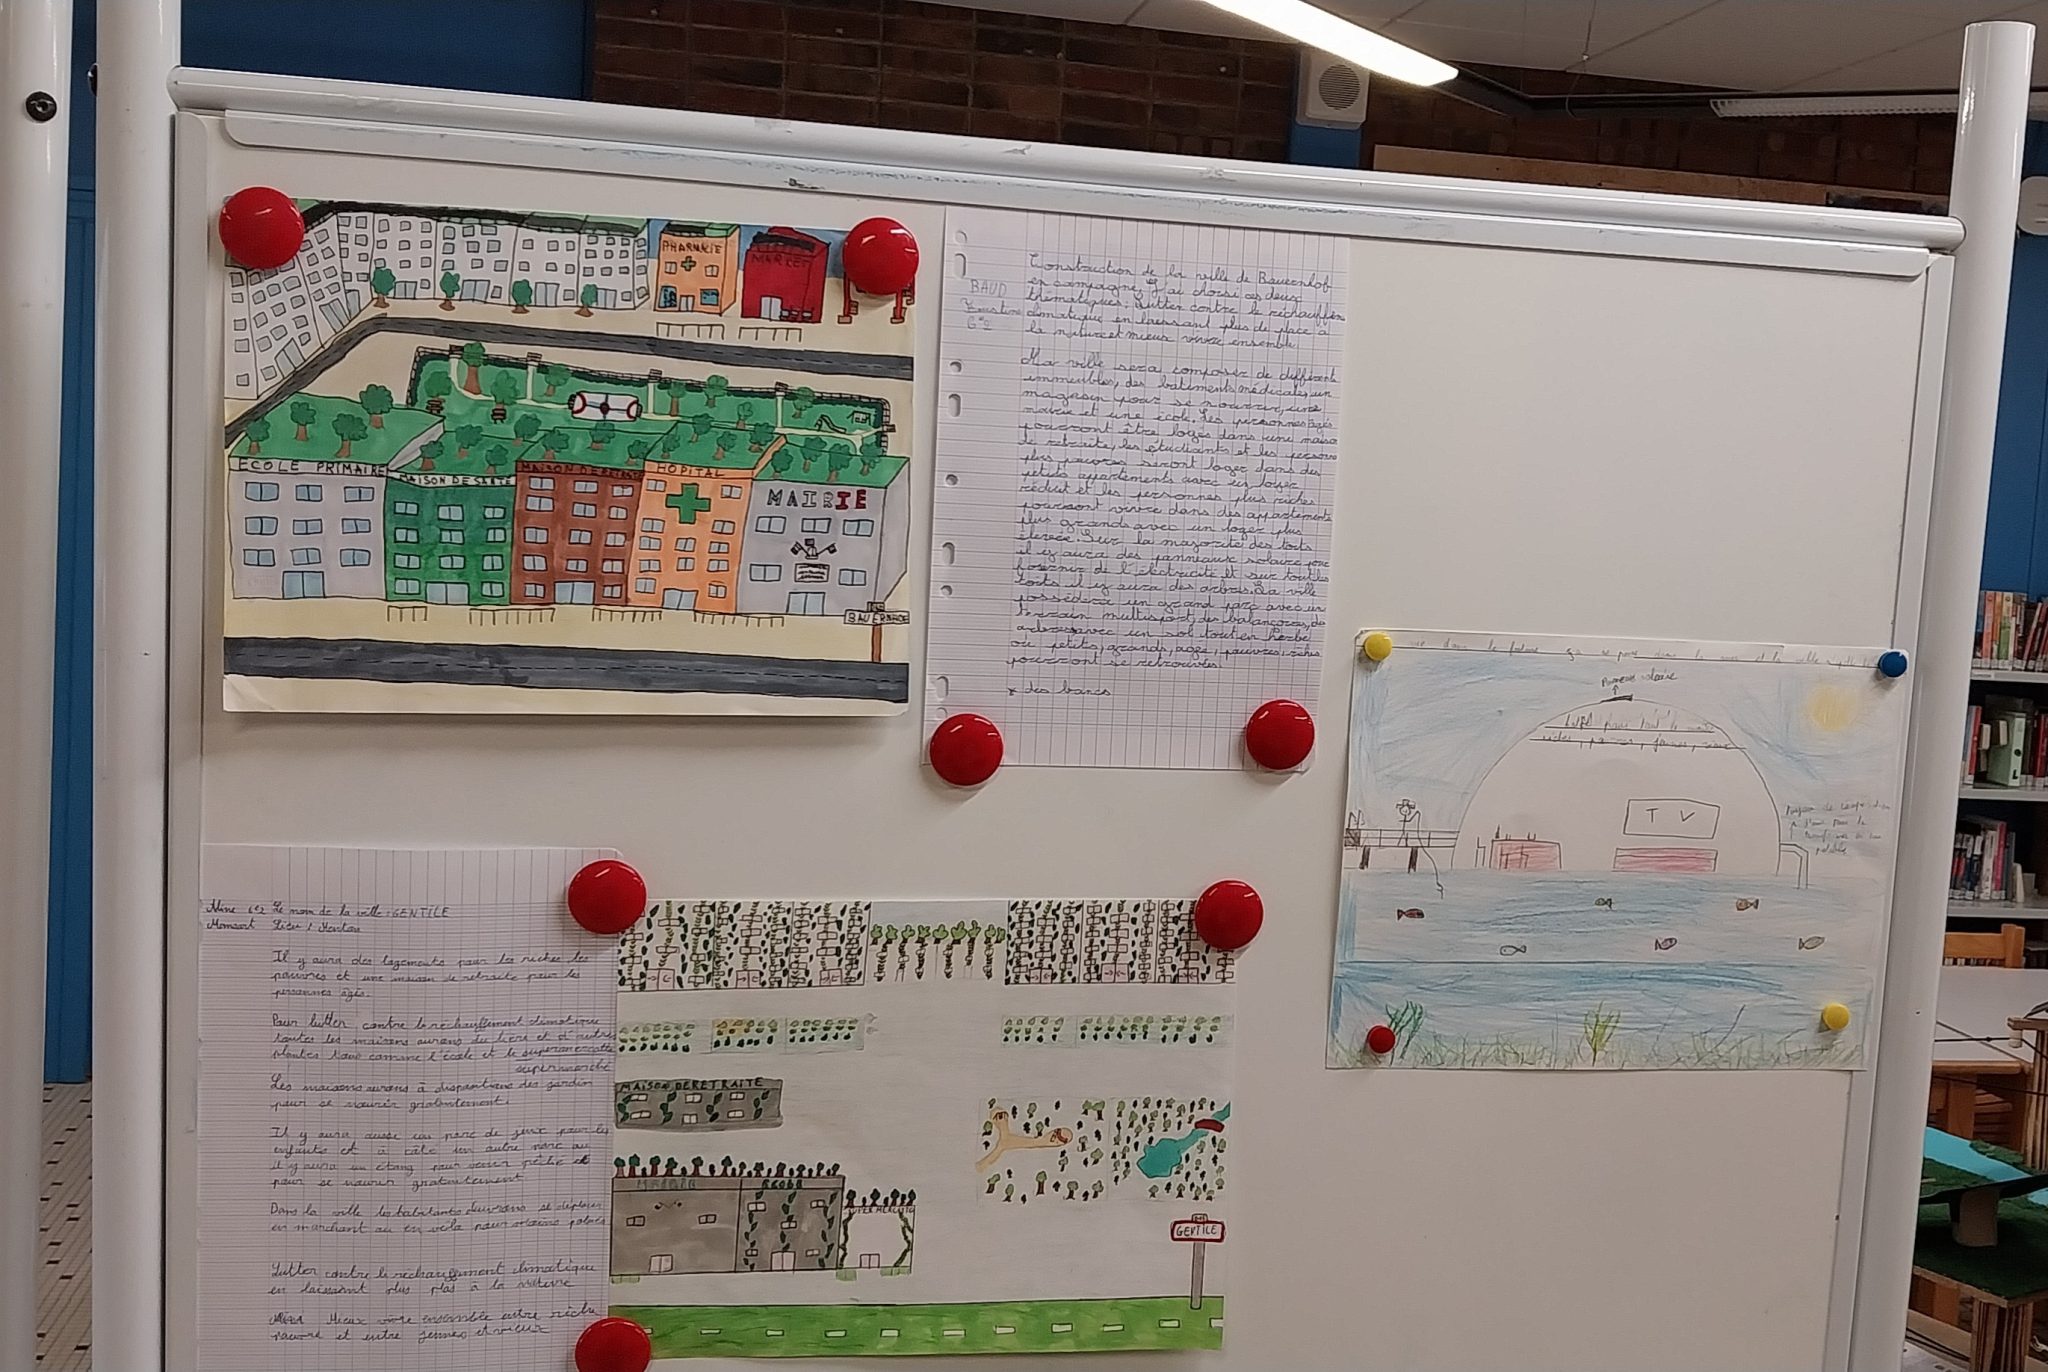 PHARMACIE
MARKET
ECOLE PRIMAIRE
MAISON DE SANTÉ
MAISON DE RETRAITE
HOPITAL
MAIRIE
BAUERNHOF
BAUD
6e2
Construction de la ville de Bauernhof
en campagne. J'ai choisi ces deux
thématiques. Lutter contre le réchauffem
climatique en laissant plus de place à
la nature et mieux vivre ensemble.
Ma ville sera composer de différents
immeubles, des bâtiments médicales, un
magasin pour se nourrir, une
mairie et une école. Les personnes âgés
pourront être logés dans une maison
de retraite, les étudiants et les personne
plus pauvres seront loger dans des
petits appartements avec un loyer
réduit et les personnes plus riches
pourront vivre dans des appartements
plus grands avec un loyer plus
élevée. Sur la majorité des toits
il y aura des panneaux solaire pour
fournir de l'électricité et sur tout les
toits il y aura des arbres. La ville
possédera un grand parc avec un
terrain multisport, des balançoires, de
arbres avec un sol tout en herbe
où petits, grands, agée, pauvres, riches
pourront se retrouvés.
* des bancs
dans le future ça se passe dans la mer et la ville
solaire
pour tout le
riches, pauvres, jeunes, vieux
TV
potable
6e2 Le nom de la ville : GENTILE
Lieu :
Il y aura des logements pour les riches les
pauvres et une maison de retraite pour les
personnes âgés.
Pour lutter contre le réchauffement climatique
toutes les maisons aurons du lierre et d'autres
plantes tout comme l'école et le
supermarché
Les maisons aurons à dispositions des jardin
pour se nourir gratuitement.
Il y aura aussi un parc de jeux pour les
enfants et à côte un autre parc ou
il y aura un étang pour venir pêché et
pour se nourir gratuitement
Dans la ville les habitants devrons se déplacer
en marchant ou en vélo pour moins polués
Lutter contre le réchauffement climatique
en laissant plus plas à la nature
Mieux vivre ensemble entre riche
pauvre et entre jeunes et vieux
MAISON DE RETRAITE
MAIRIE
ECOLE
GENTILE